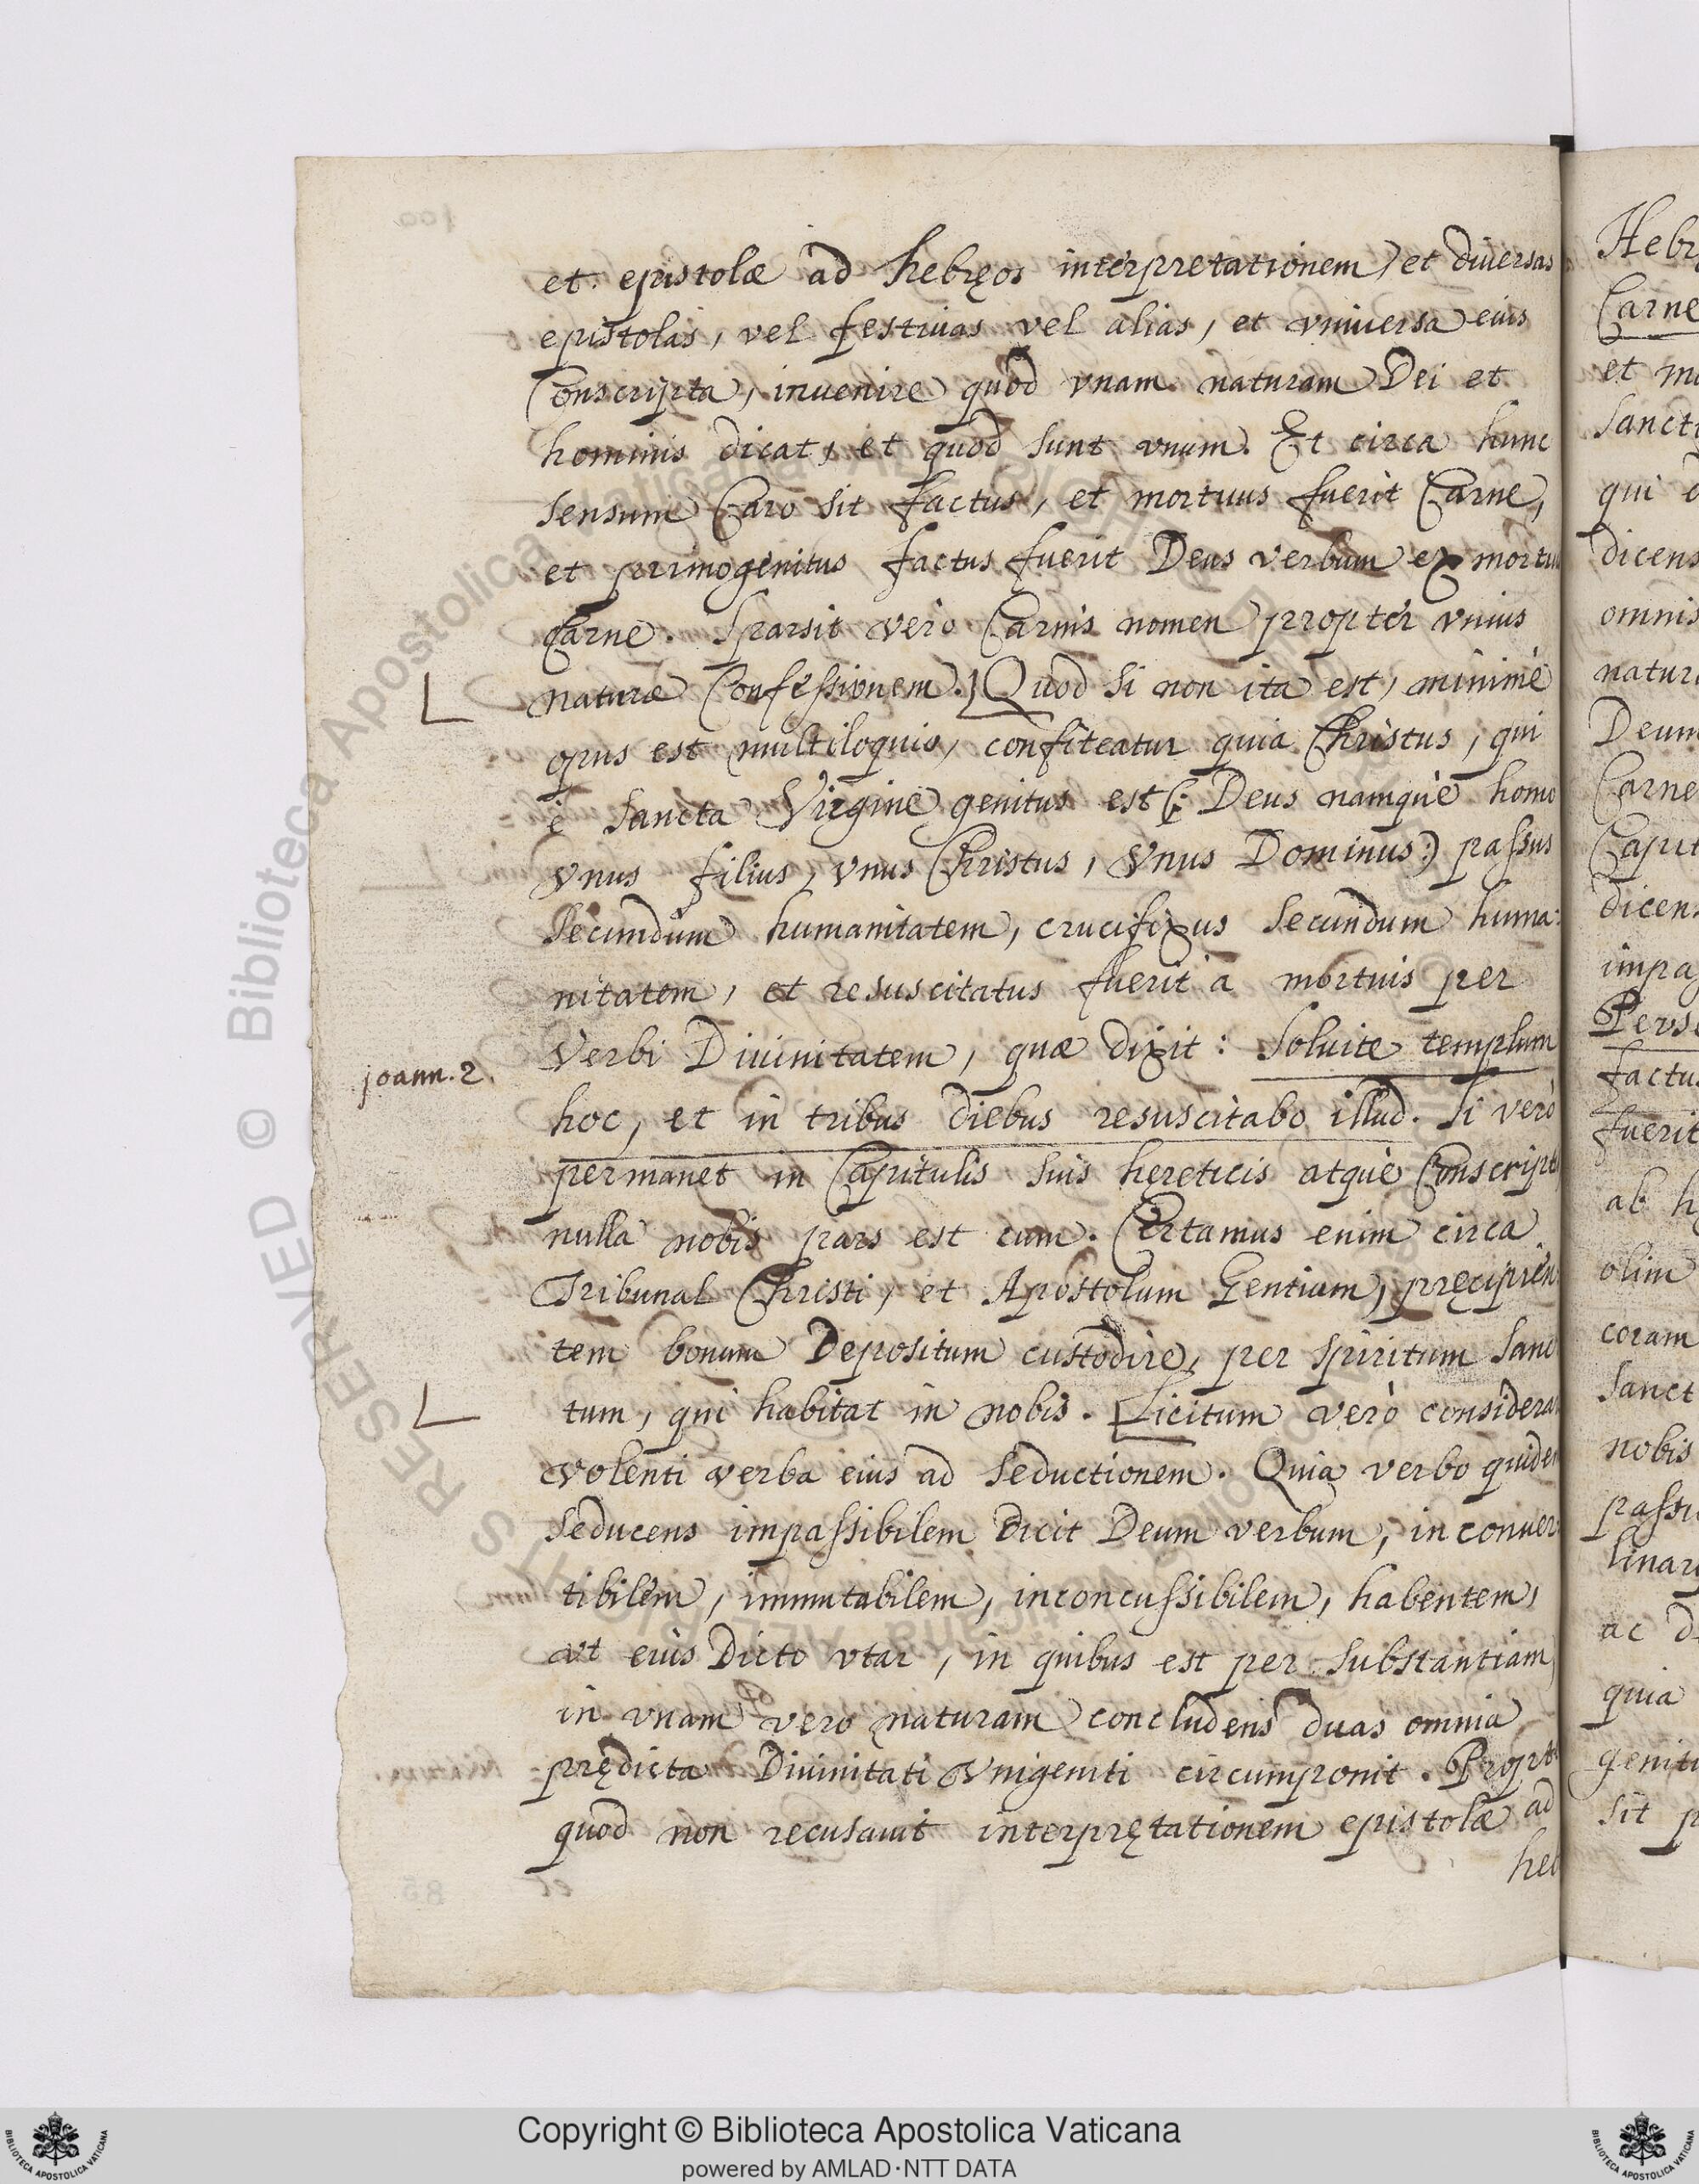 et epistolæ ad hebręos interpretationem, et diuersas
epistolas, vel festiuas vel alias, et vniuersa eius
Conscripta, inuenire quòd vnam naturam Dei et
hominis dicat, et quòd sunt vnum. Et circa hunc
sensum Caro sit factus, et mortuus fuerit Carne,
et primogenitus factus fuerit Deus verbum ex mortu
Carne. Sparsit verò Carnis nomen propter vnius
naturæ Confessionem.] Quod si non ita est, minimè
opus est multiloquio, confiteatur quia Christus, qui
è sancta Virgine genitus est (: Deus namquè homo
vnus filius, vnus Christus, vnus Dominus:) passus
secundùm humanitatem, crucifixus secundum huma:
nitatem, et resuscitatus fuerit à mortuis per
Verbi Diuinitatem, quæ dixit: Soluite templum
joann. 2.
hoc, et in tribus diebus resuscitabo illud. Si verò
permanet in Capitulis suis hęreticis atquè Conscript
nulla nobis pars est cum. Certamus enim circa
Tribunal Christi, et Apostolum Gentium, pręcipien
tem bonum Depositum custodire, per spiritum sanc
tum, qui habitat in nobis. [Licitum verò considerar
volenti verba eius ad seductionem. Quia verbo quidem
seducens impassibilem dicit Deum verbum, inconuer
tibilem, immutabilem, inconcussibilem, habentem,
vt eius Dicto vtar, in quibus est per substantiam
in vnam vero naturam concludens duas omnia
prędicta Diuinitati Vnigeniti circumponit. Propt
quod non recusauit interprętationem epistolæ ad
heb
Hebr
Carne
et mo
sancti
qui e
dicens
omnis
natur
Deum
Carne
Capit
dicen
impas
Perse
factu
fuerit
ab h
olim
coram
sanct
nobis
passu
linar
ac d
quia
geniti
sit p
© Biblioteca Apostolica Vaticana
Copyright © Biblioteca Apostolica Vaticana
powered by AMLAD·NTT DATA
BIBLIOTECA APOSTOLICA VATICANA
BIBLIOTECA APOSTOLICA VATICANA